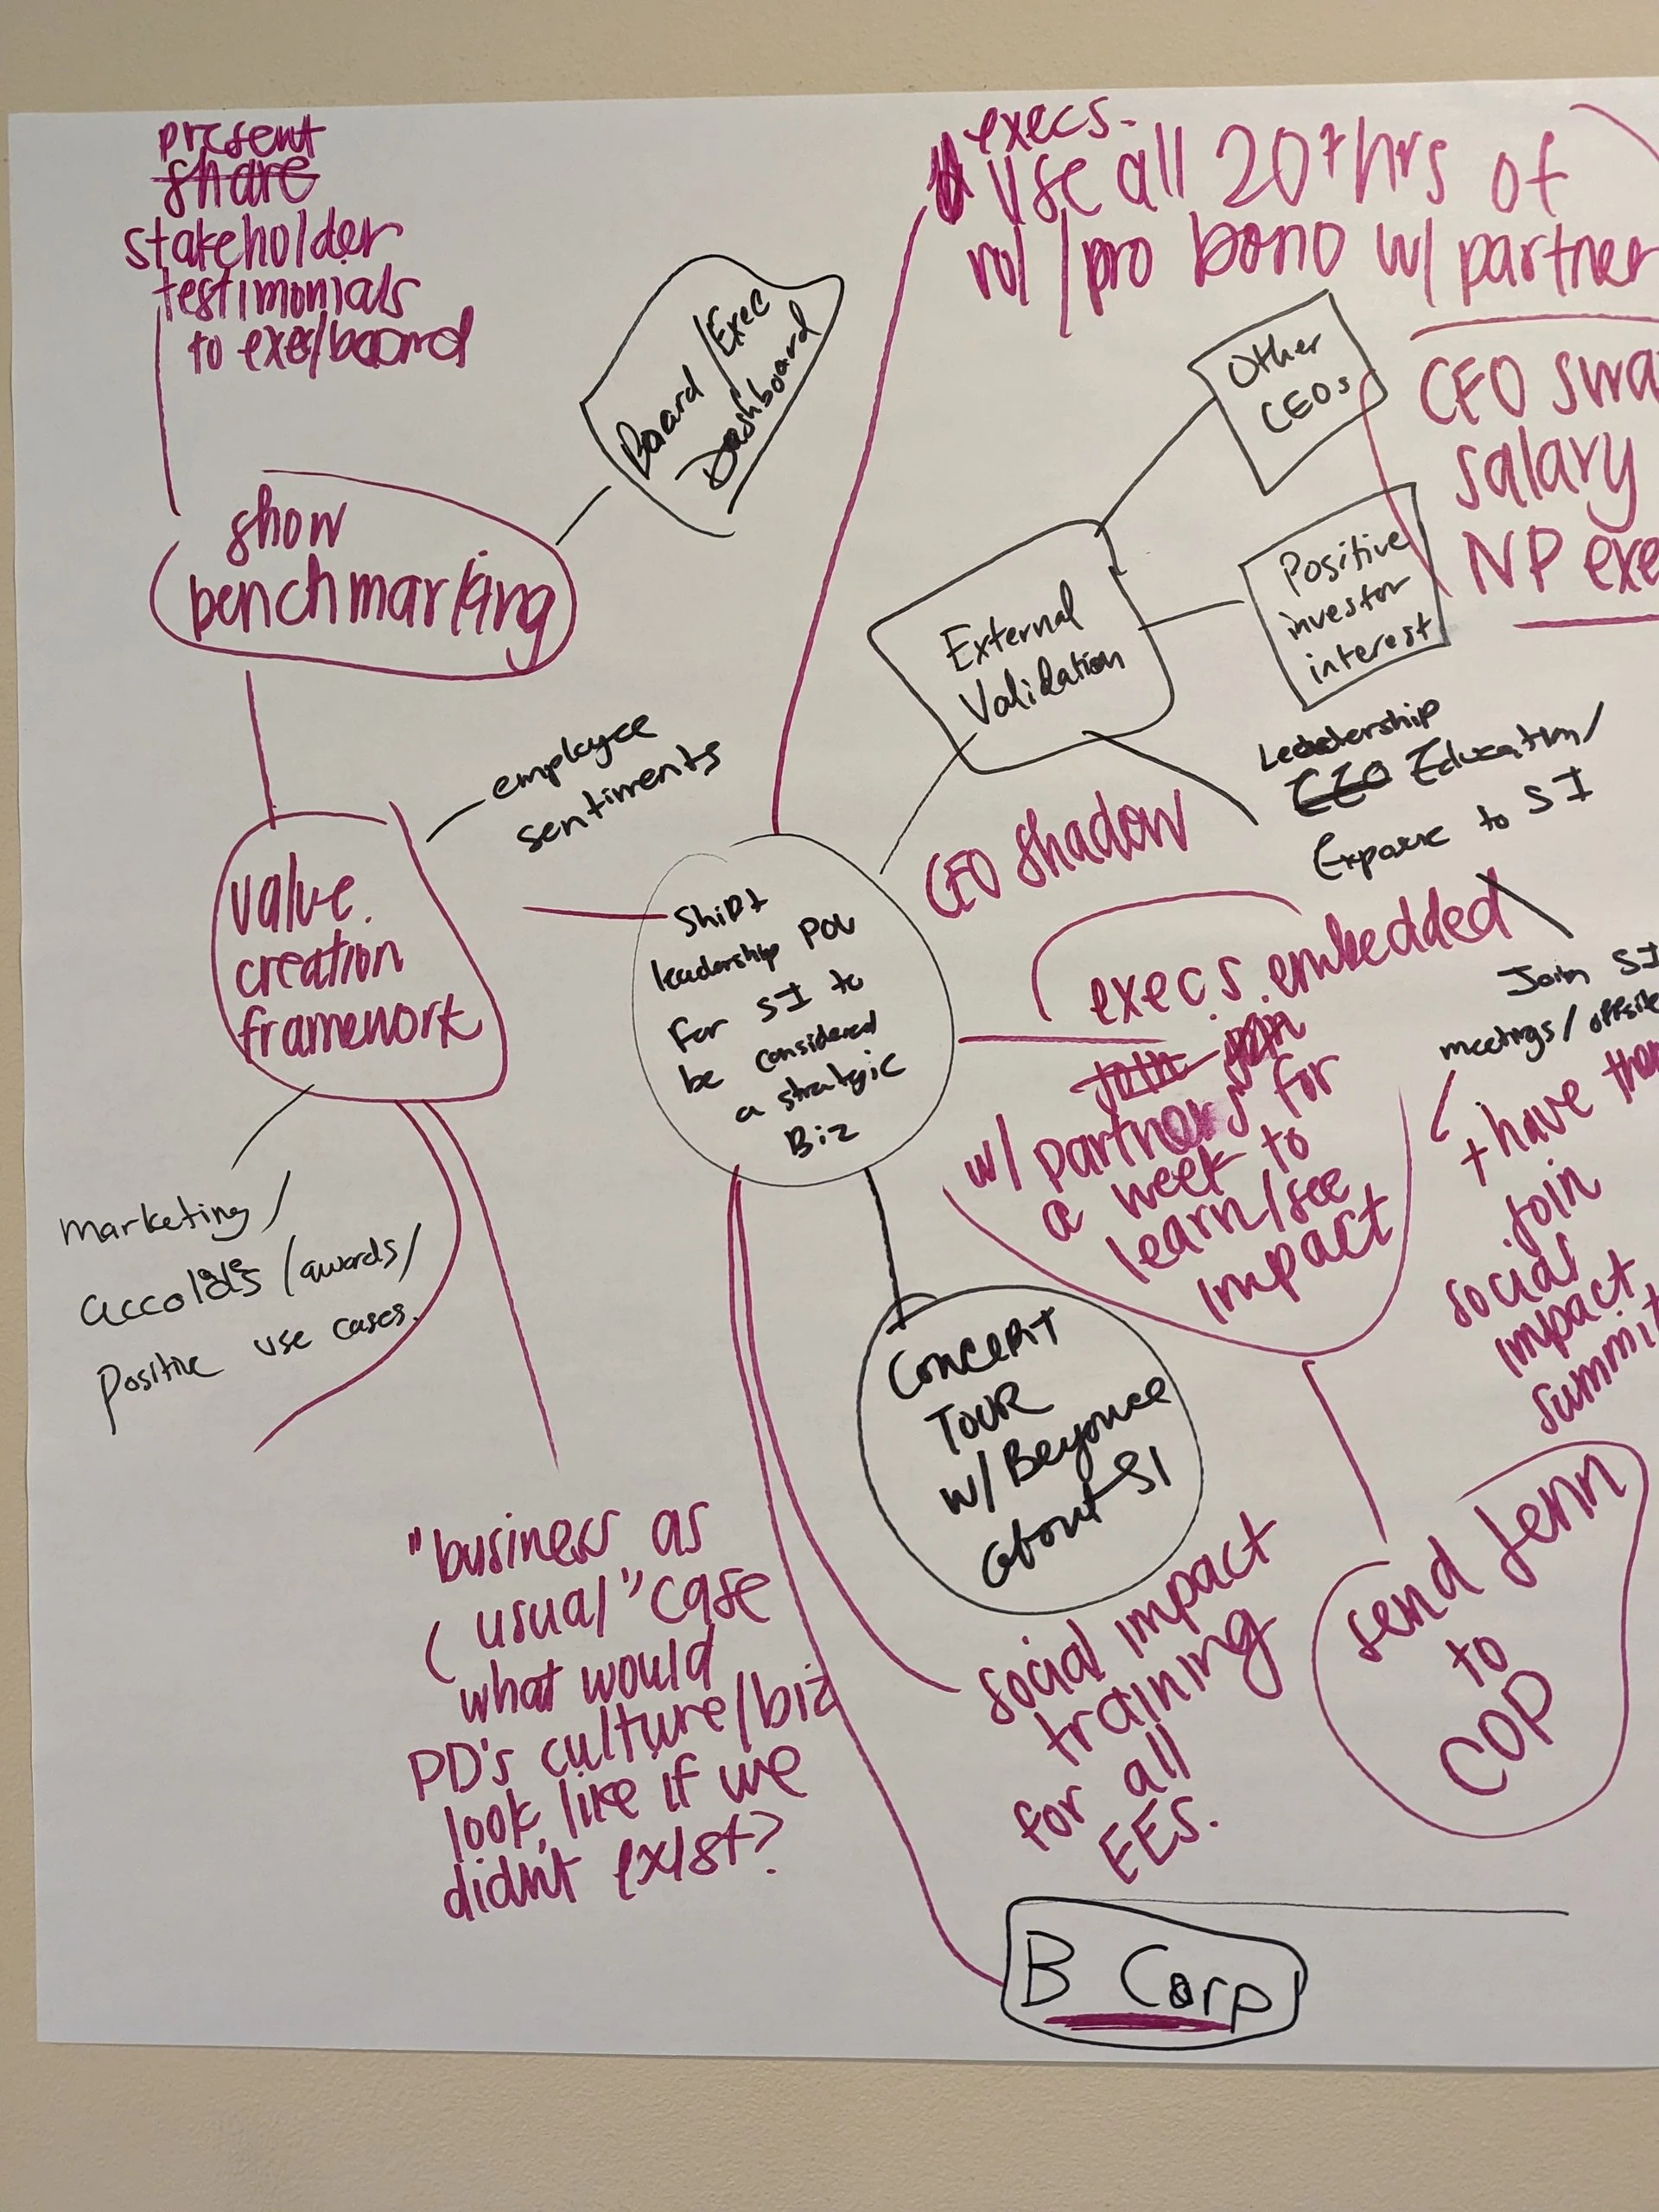 present
share
stakeholder
testimonials
to exec/board
Board/Exec
Dashboard
show
benchmarking
employee
sentiments
value
creation
framework
marketing/
accolades/awards/
Positive use cases.
"business as
usual" case
what would
PD's culture/biz
look like if we
didn't exist?
execs.
Use all 20+hrs of
vol/pro bono w/ partner
Other
CEOs
CFO swa
salary
NP exe
External
Validation
Positive
investor
interest
Leadership
CEO Education/
Exposure to SI
CFO Shadow
Shift
leadership POV
For SI to
be considered
a strategic
Biz
execs. embedded
join join
w/ partners for
a week to
learn/see
impact
Join SI
meetings/offsite
+ have them
join
social
impact
summit
Concept
Tour
w/ Beyonce
about SI
social impact
training
for all
EEs.
send Jenn
to
COP
B Corp